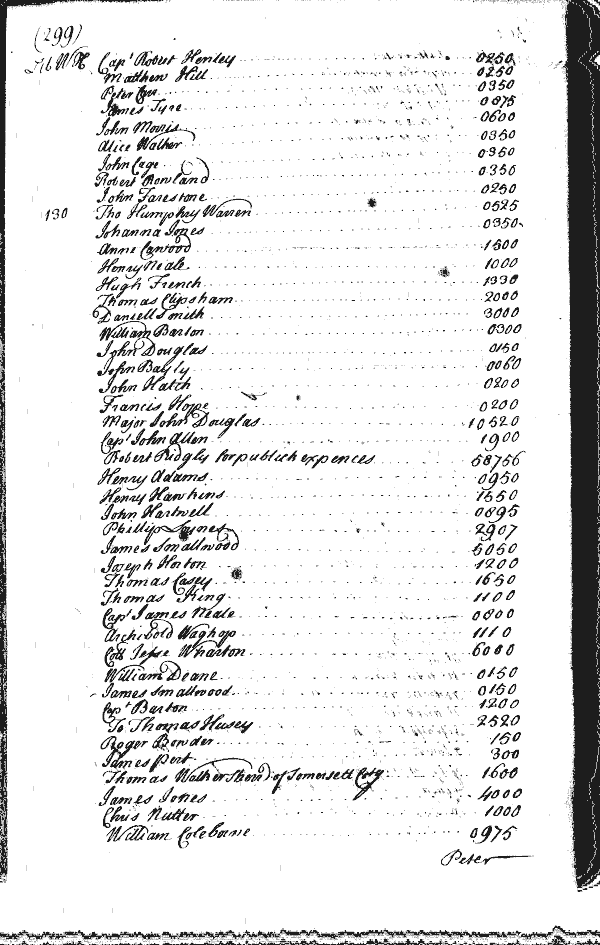 (299)
Lib W H Capt Robert Henley 0250
Matthew Hill 0250
Peter Carr 0350
James Tyre 0875
John Morris 0600
Alice Walker 0350
John Cage 0350
Robert Rowland 0350
John Farestone 0250
130 Tho Humphry Warren 0525
Johanna Jones 0350
Anne Cawood 1500
Henry Neale 1000
Hugh French 1330
Thomas Clipsham 2000
Daniell Smith 3000
William Barton 0300
John Douglas 0150
John Bayly 0060
John Hatch 0200
Francis Hope 0200
Major John Douglas 10520
Capt John Allen 1900
Robert Ridgly for publick expences 58756
Henry Adams 0950
Henry Hawkins 1550
John Hartwell 0895
Phillip Lynes 2907
James Smallwood 5050
Joseph Horton 1200
Thomas Casey 1650
Thomas King 1100
Capt James Neale 0800
Archibold Waghop 1110
Coll Jesse Wharton 6000
William Deane 0150
James Smallwood 0150
Capt Barton 1200
To Thomas Husey 2520
Roger Bowder 150
James Pert 300
Thomas Walker Sheriff of Somersett Coty 1600
James Jones 4000
Chris Nutter 1000
William Coleborne 0975
Peter